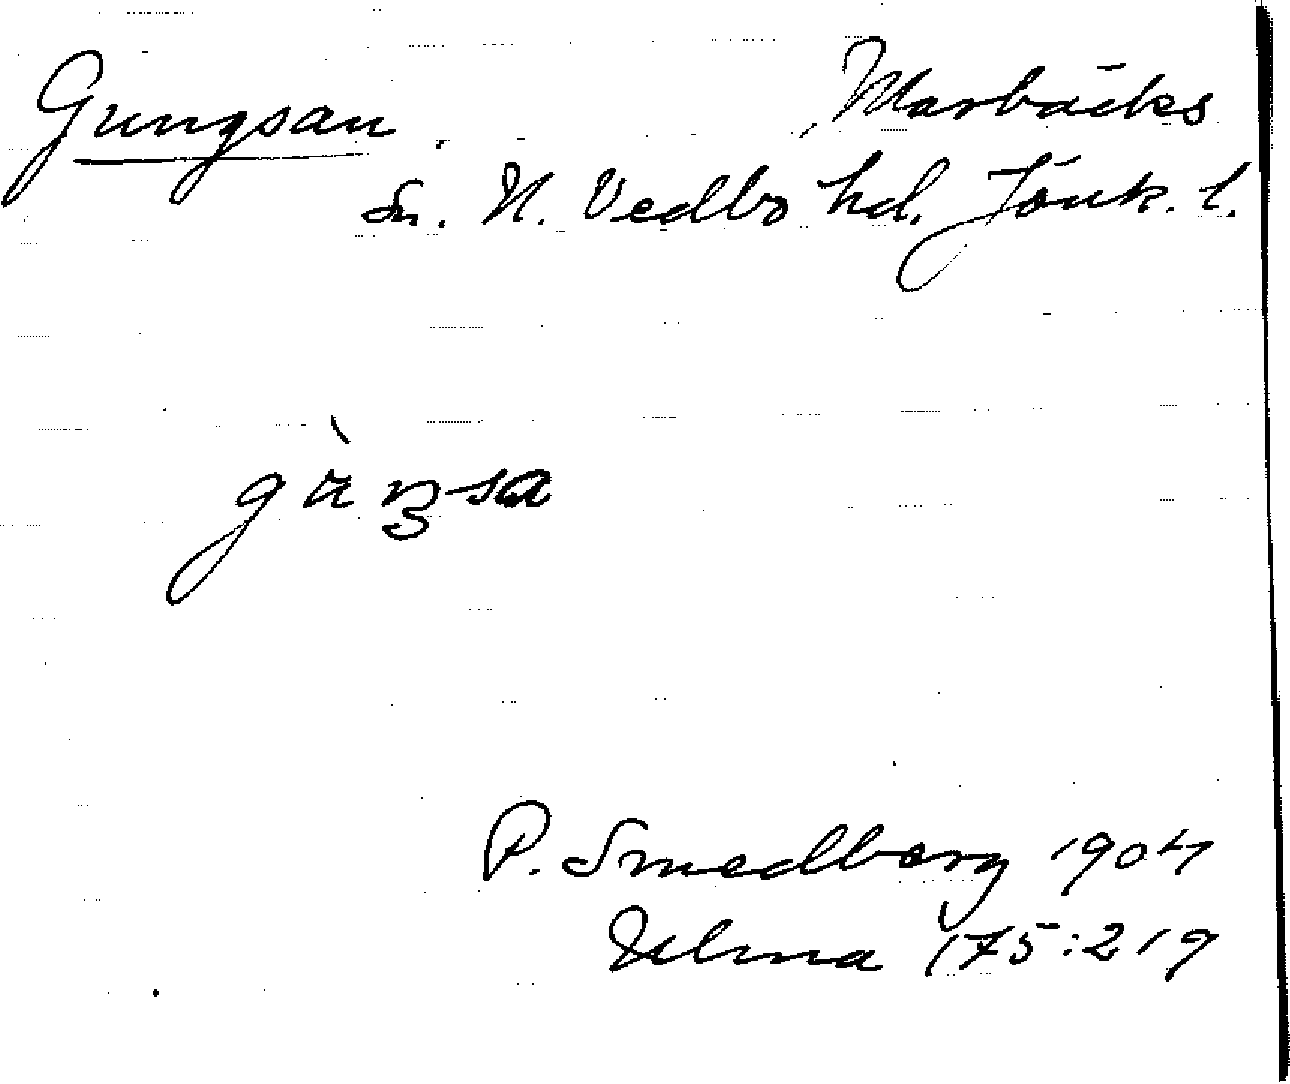 Gungsan. Marbäcks
Sn. N. Vedbo hd. Jönk. l.
P. Smedberg 1904
Ulma 175:219